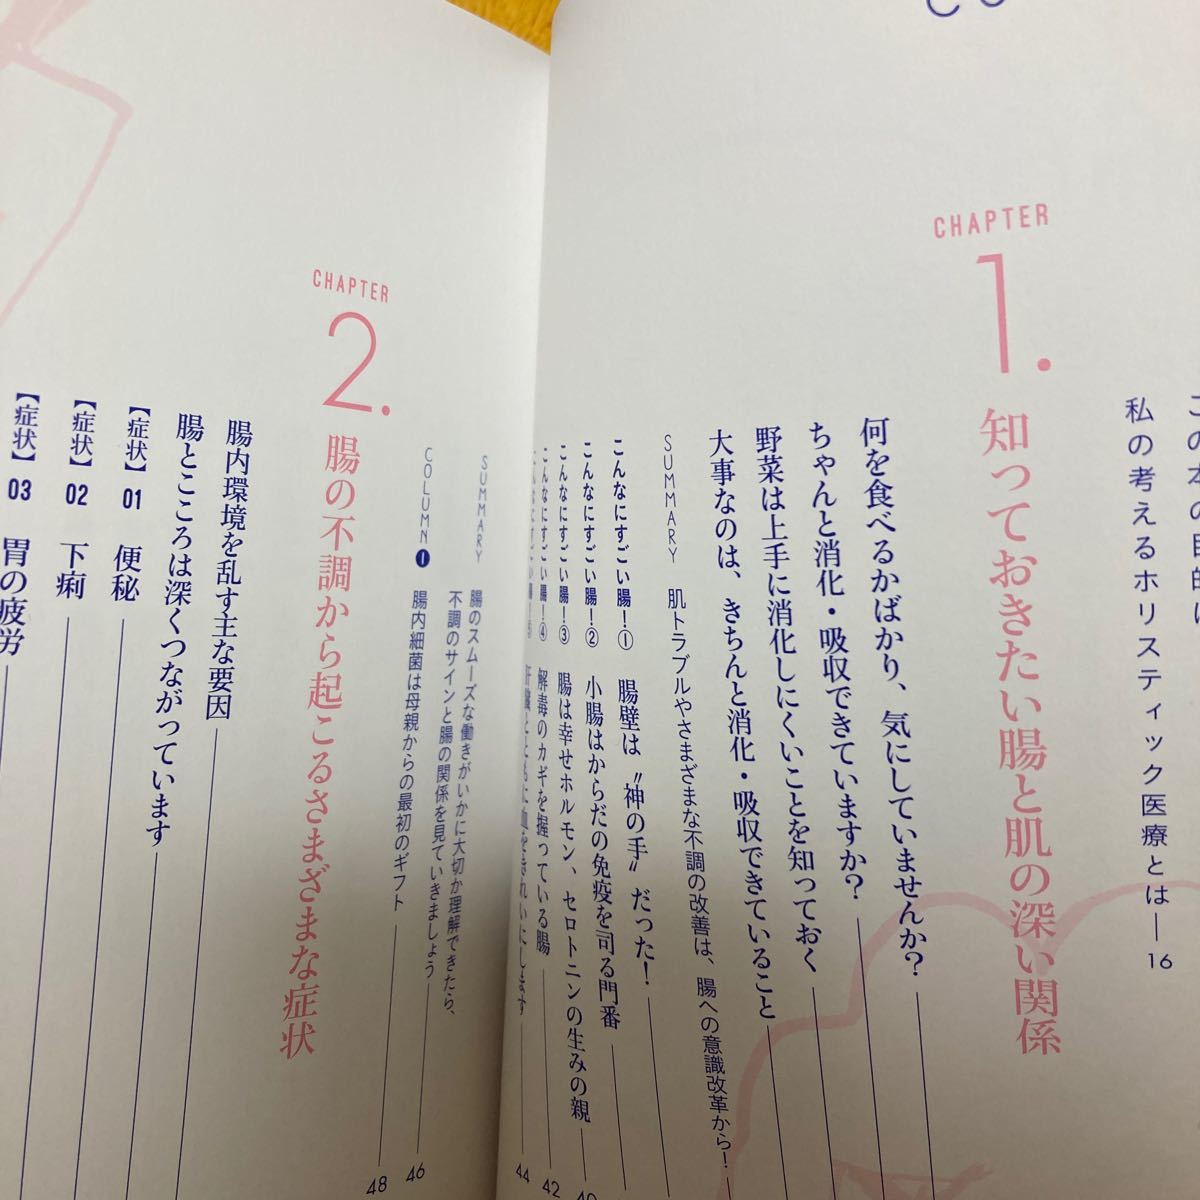 この本の目的は
私の考えるホリスティック医療とは 16
CHAPTER
1.
知っておきたい腸と肌の深い関係
何を食べるかばかり、気にしていませんか?
ちゃんと消化・吸収できていますか?
野菜は上手に消化しにくいことを知っておく
大事なのは、きちんと消化・吸収できていること
SUMMARY 肌トラブルやさまざまな不調の改善は、腸への意識改革から!
こんなにすごい腸!① 腸壁は〝神の手〟だった!
こんなにすごい腸!② 小腸はからだの免疫を司る門番
こんなにすごい腸!③ 腸は幸せホルモン、セロトニンの生みの親 40
こんなにすごい腸!④ 解毒のカギを握っている腸 42
こんなにすごい腸!⑤ 肝臓とともに血をきれいにします 44
SUMMARY 腸のスムーズな働きがいかに大切か理解できたら、
不調のサインと腸の関係を見ていきましょう 46
COLUMN 1 腸内細菌は母親からの最初のギフト 48
CHAPTER
2.
腸の不調から起こるさまざまな症状
腸内環境を乱す主な要因
腸とこころは深くつながっています
【症状】01 便秘
【症状】02 下痢
【症状】03 胃の疲労